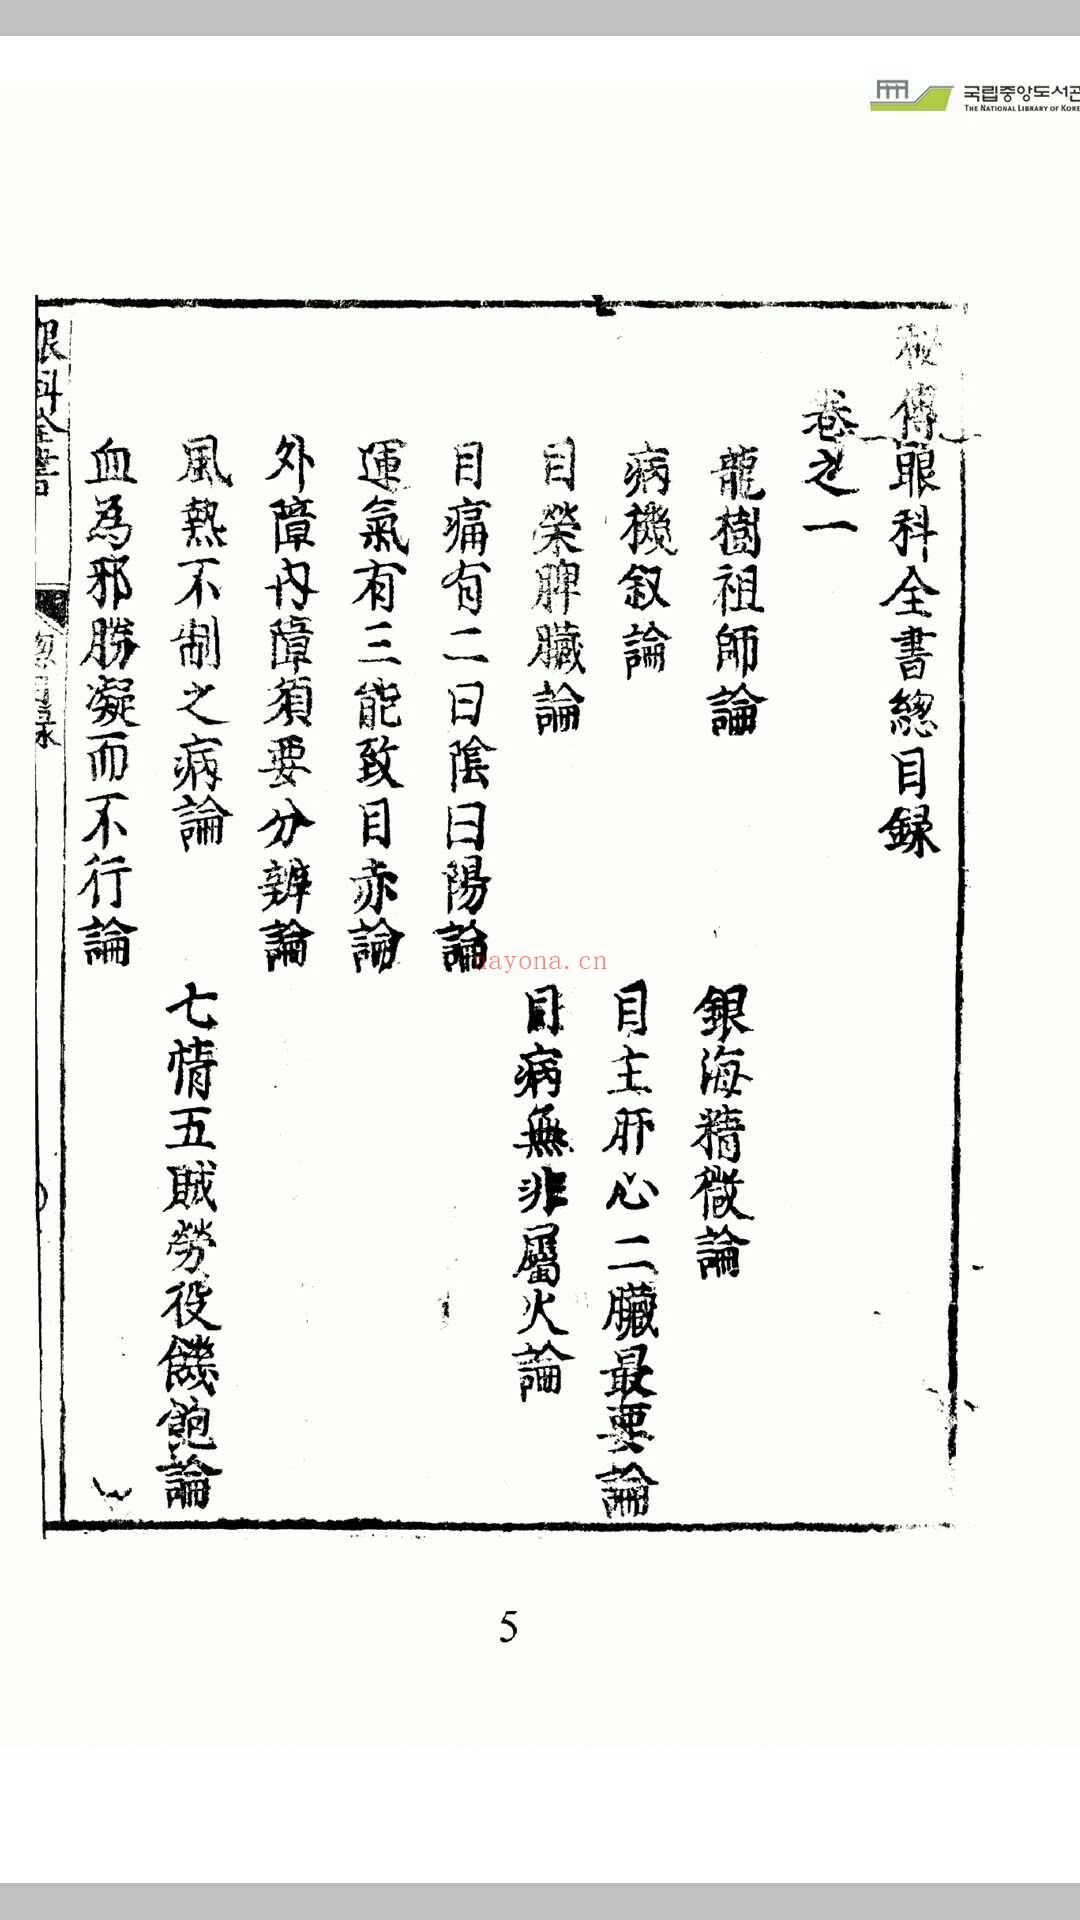 국립중앙도서관
THE NATIONAL LIBRARY OF KORE
秘傳眼科全書總目錄
卷之一
龍樹祖師論
銀海精微論
病機叙論
目主肝心二臟最要論
目榮脾臟論
目病無非屬火論
目痛有二曰陰曰陽論
運氣有三能致目赤論
外障內障須要分辨論
風熱不制之病論
七情五賊勞役饑飽論
血為邪勝凝而不行論
眼科全書
總目錄
nayona.cn
5